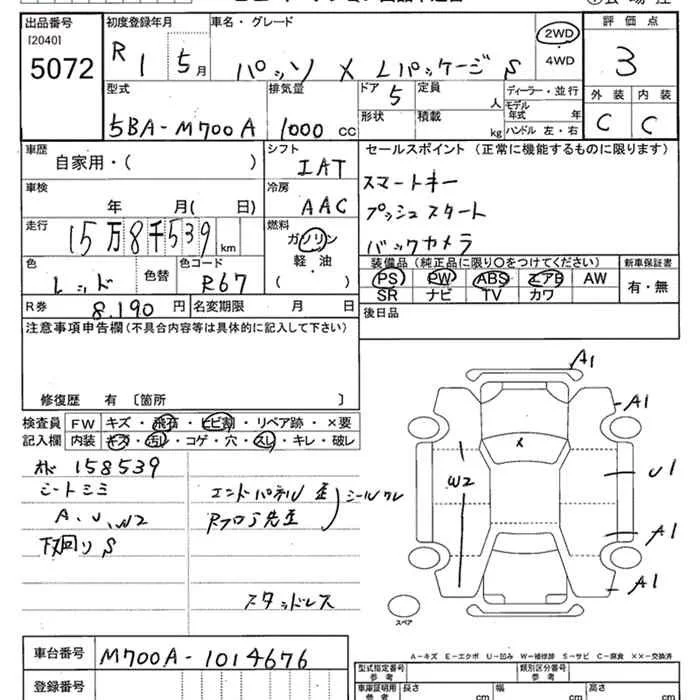 出品番号
[2040]
5072
初度登録年月
R 1 5月
車名・グレード
パッソ X Lパッケージ S
2WD
・
4WD
評価点
3
型式
5BA-M700A
排気量
1000 cc
ドア 5
定員 人
形状
積載 kg
ディーラー・並行
モデル年式 年
ハンドル 左・右
外装 内装
C C
車歴
自家用・( )
シフト
IAT
セールスポイント (正常に機能するものに限ります)
スマートキー
プッシュスタート
バックカメラ
車検
年 月( 日)
冷房
AAC
走行
15万8千539 km
燃料
ガソリン
軽・油
( )
色
レッド
色替
色コード
R67
装備品 (純正品に限り○をつけてください)
PS PW ABS エアB AW
SR ナビ TV カワ
新車保証書
有・無
R券 8.190 円
名変期限 月 日
後日品
注意事項申告欄 (不具合内容等は具体的に記入して下さい)
修復歴 有 〔箇所 〕
検査員記入欄
FW キズ・飛石・ヒビ割・リペア跡・×要
内装 キズ・汚れ・コゲ・穴・スレ・キレ・破レ
158539
シートシミ
A、U、W2
下回りS
エンドパネル 歪
Rフロア先歪
シールワレ
スタッドレス
A1
A1
W2
U1
A1
A1
スペア
A-キズ E-エクボ U-凹み W-補修跡 S-サビ C-腐食 ××-交換済
車台番号
M700A-1014676
登録番号
型式指定番号 参考
類別区分番号 参考
車庫証明用 参考
長さ cm
幅 cm
高さ cm